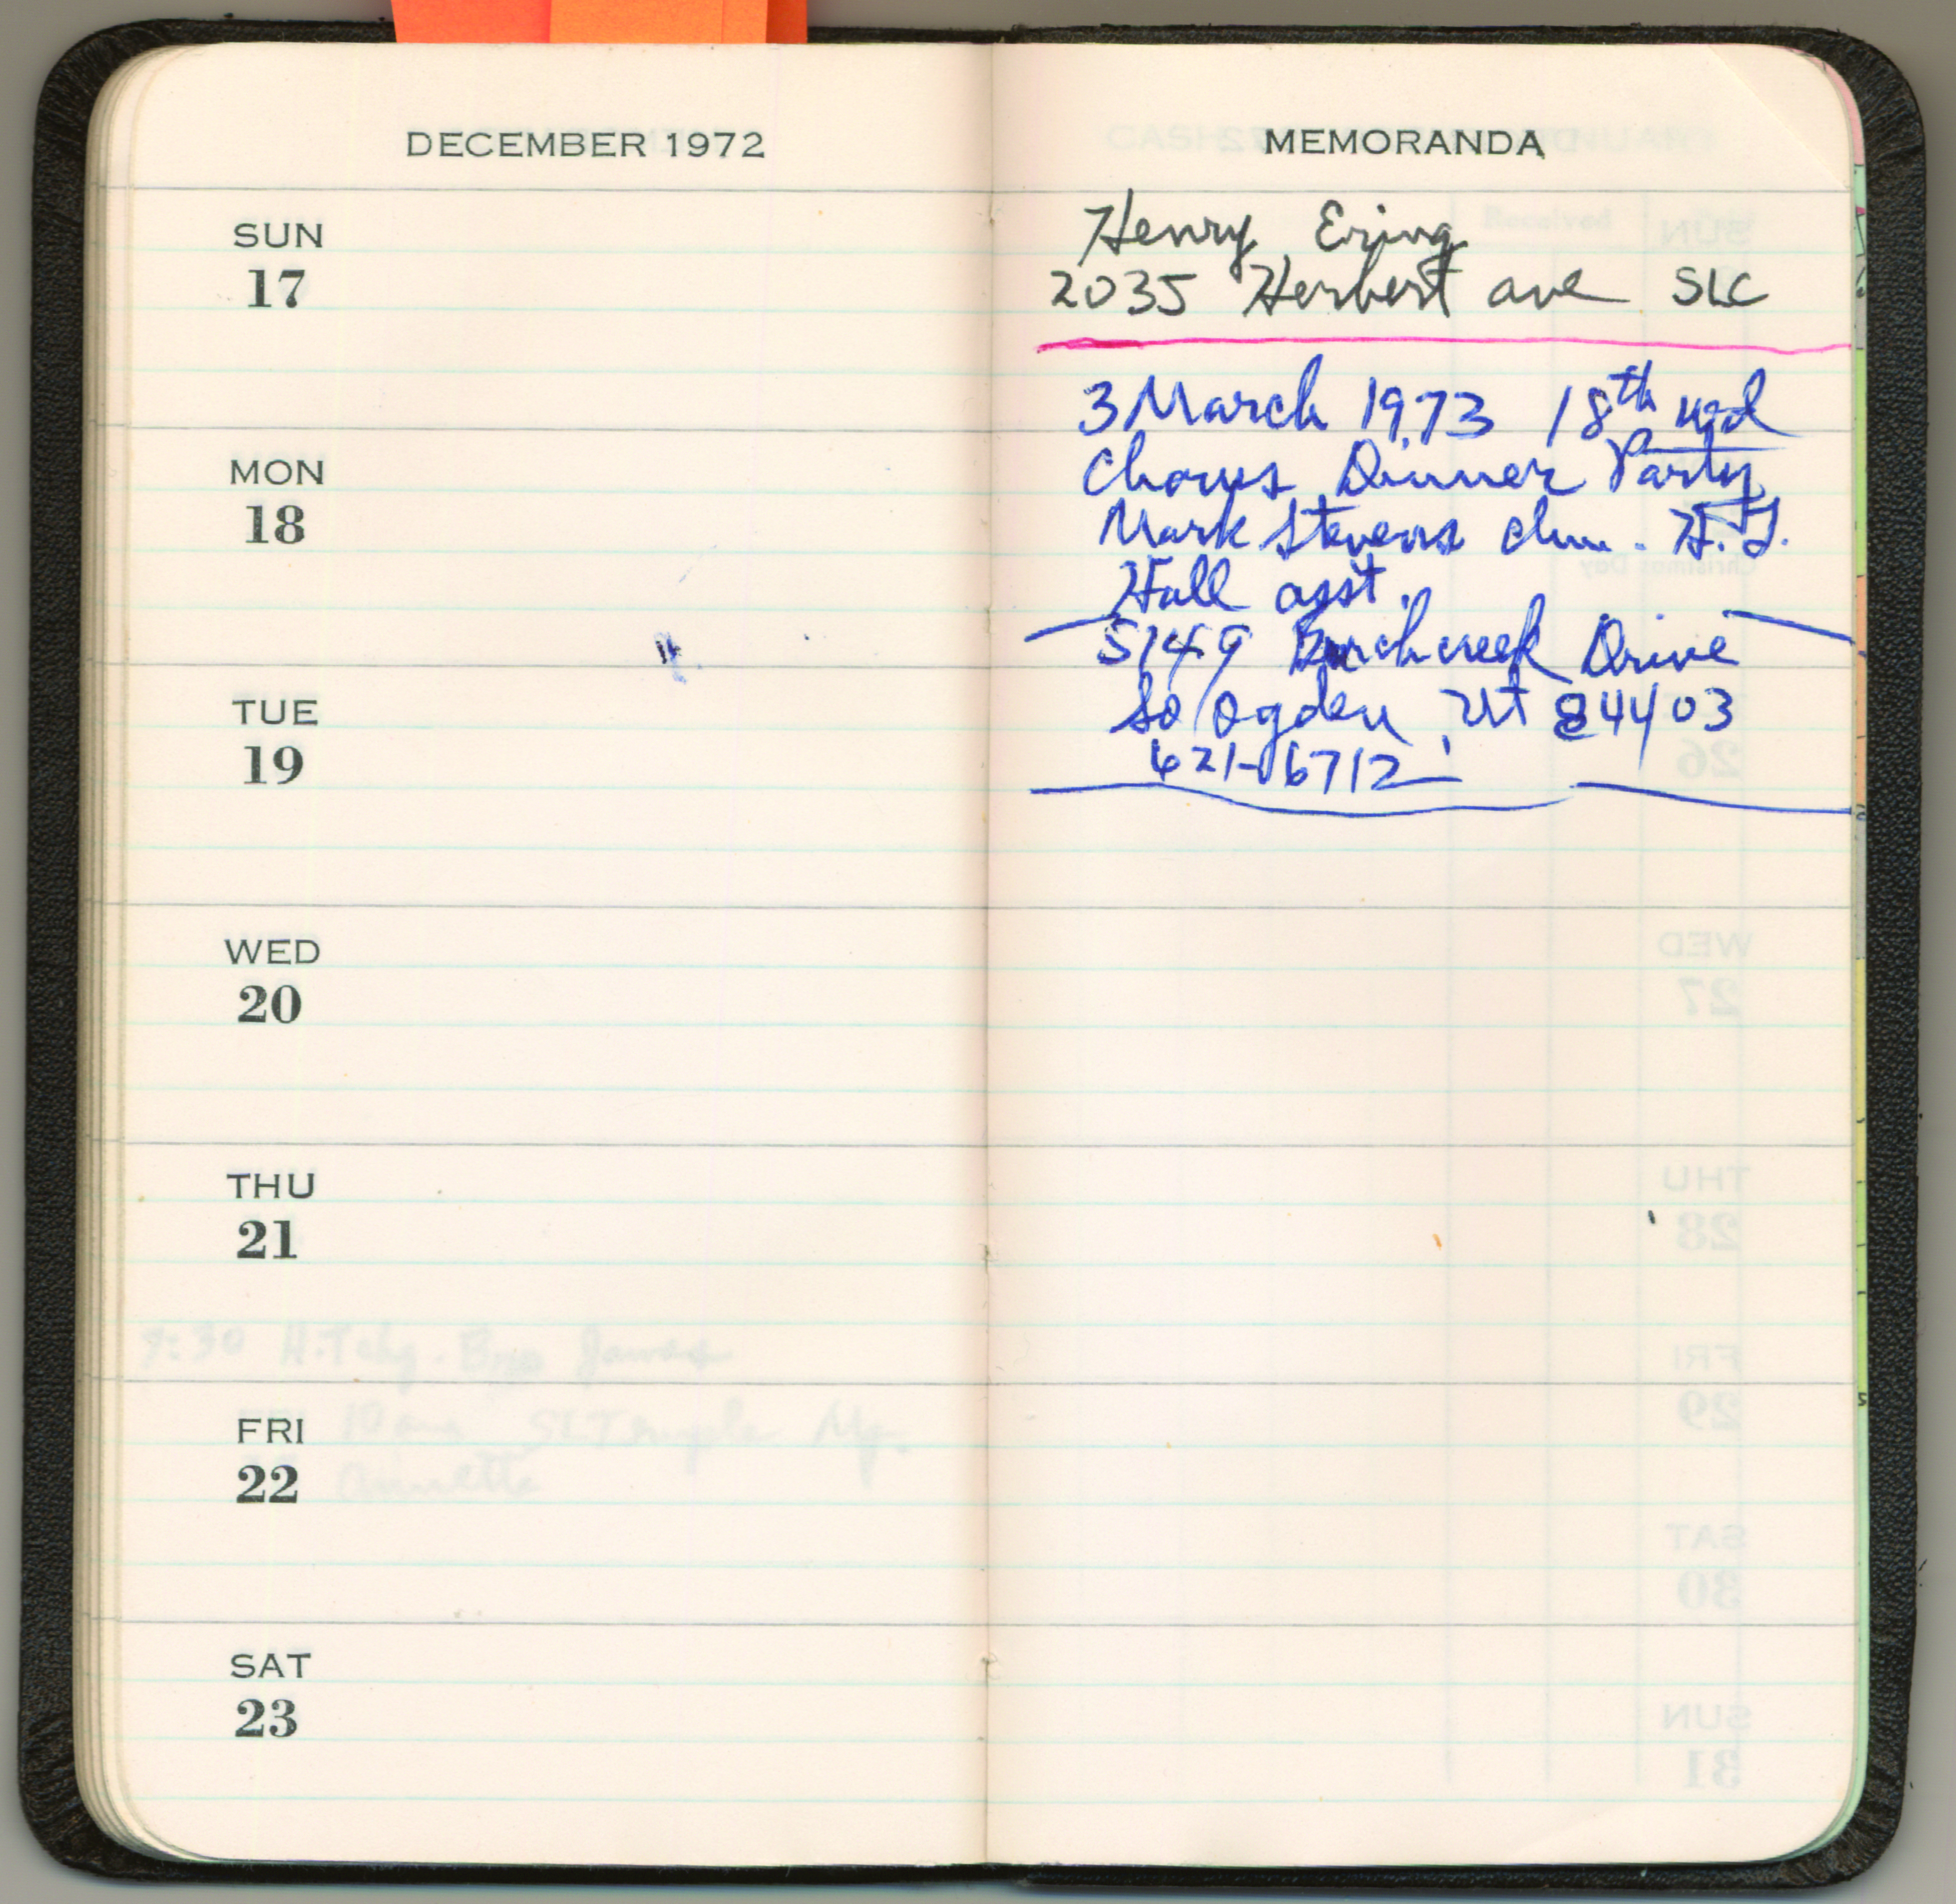 DECEMBER 1972
SUN
17
MON
18
TUE
19
WED
20
THU
21
9:30 H.Tchg. Bro James
FRI 10 am SL Temple Mtg.
22 Annette
SAT
23
MEMORANDA
Henry Ering
2035 Herbert ave SLC
3 March 1973 18th wd
Chorus Dinner Party
Mark Stevens chm. H.J.
Hall asst.
5149 Burchcreek Drive
So Ogden, Ut 84403
621-6712